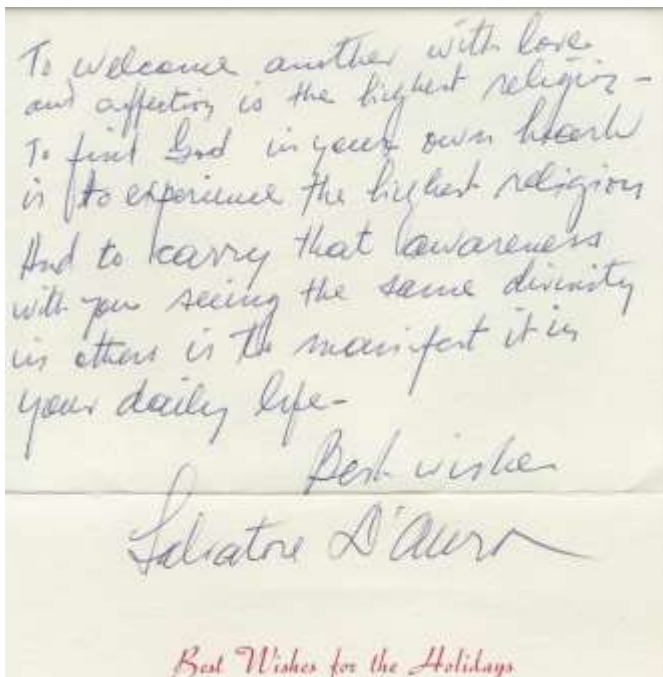 To welcome another with love
and affection is the highest religion -
To find God in your own heart
is to experience the highest religion
And to carry that awareness
with you seeing the same divinity
in others is to manifest it in
your daily life-
Best wishes
Salvatore D'Aura
Best Wishes for the Holidays